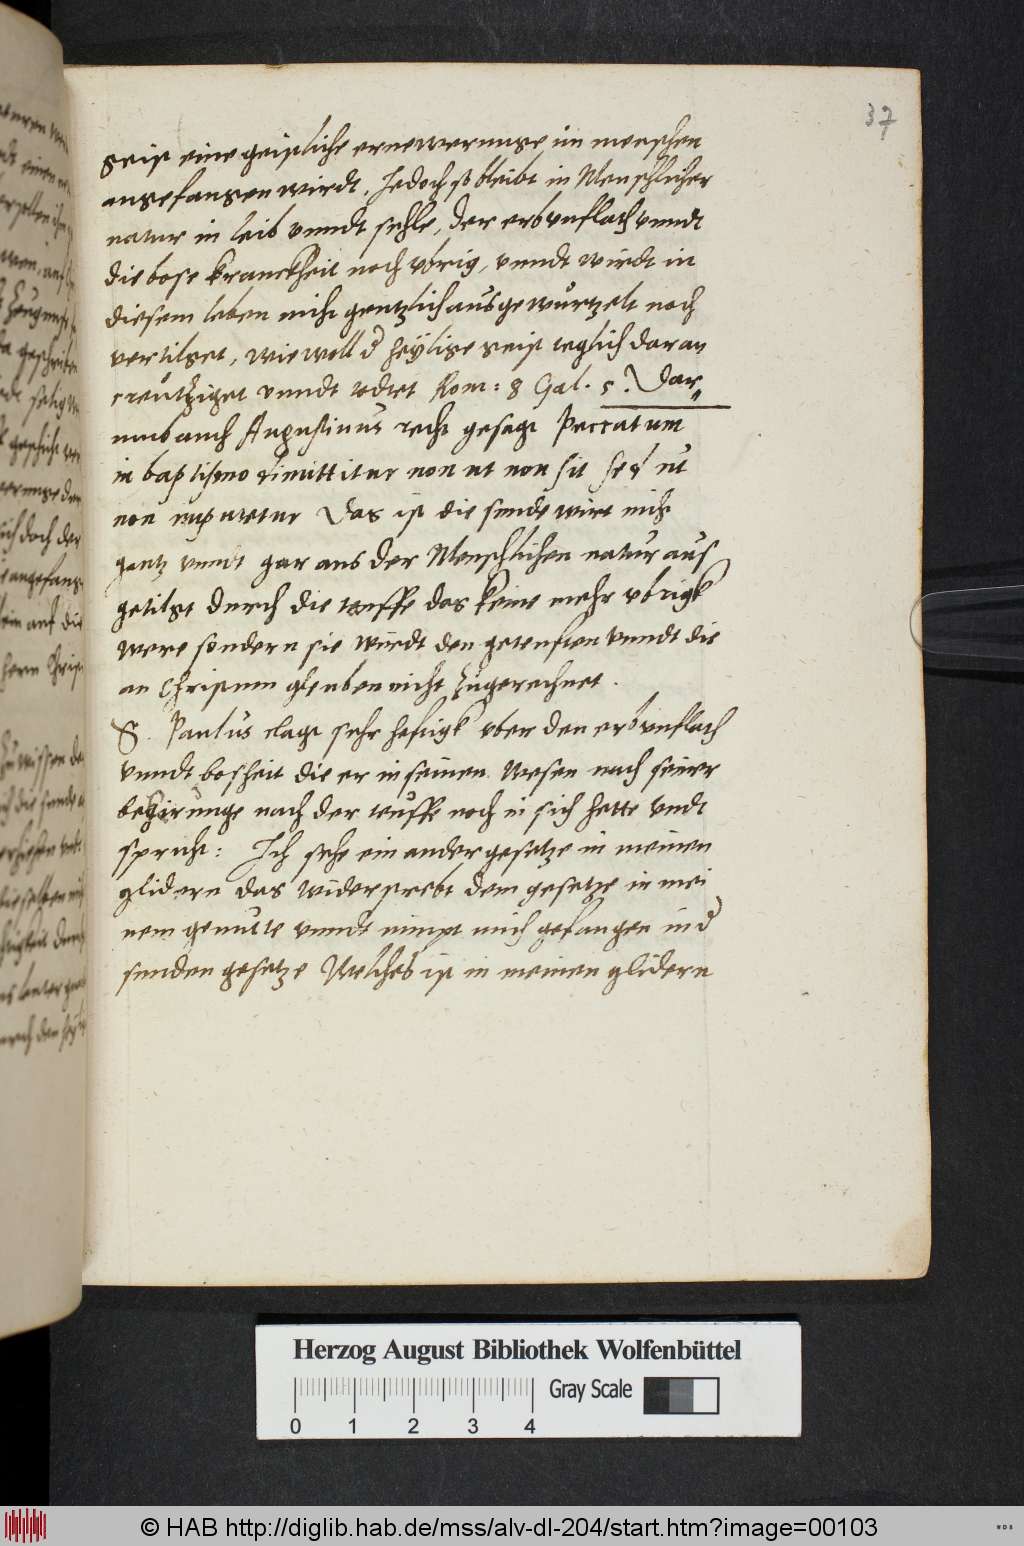 37
geist eine geistliche ernewerunge im menschen
angefangen wirdt, Jedoch so bleibt in Menschlicher
natur in leib unndt sehle, der erbunflath unndt
die bose kranckheit noch ubrig, unndt wirdt in
diesem leben nicht gentzlich ausgewurtzelt noch
vertilget, wie woll d heÿlige geist teglich daran
creutziget unndt todtet Rom: 8 Gal. 5. Dar„
umb auch Augustinus recht gesagt Peccatum
in baptismo dimittitur non ut non sit sed ut
non imputetur Das ist die sunde wirt nicht
gantz unndt gar aus der Menschlichen natur aus
getilget durch die teuffe das keine mehr ubrigk
were sondern sie wirdt den geteuften unndt die
an Christum gleuben nicht zugerechnet.
S. Paulus clagt sehr heftigk uber den erbunflath
unndt bosheit die er in seinen Wesen nach seiner
bekirunge nach der teuffe noch in sich hette undt
spricht: Ich sehe ein ander gesetze in meinen
glidern das widerstrebt dem gesetze in mei
nem gemutte unndt nimpt mich gefangen in d
sunden gesetze Welches ist in meinen glidern
Herzog August Bibliothek Wolfenbüttel
Gray Scale
0 1 2 3 4
© HAB http://diglib.hab.de/mss/alv-dl-204/start.htm?image=00103